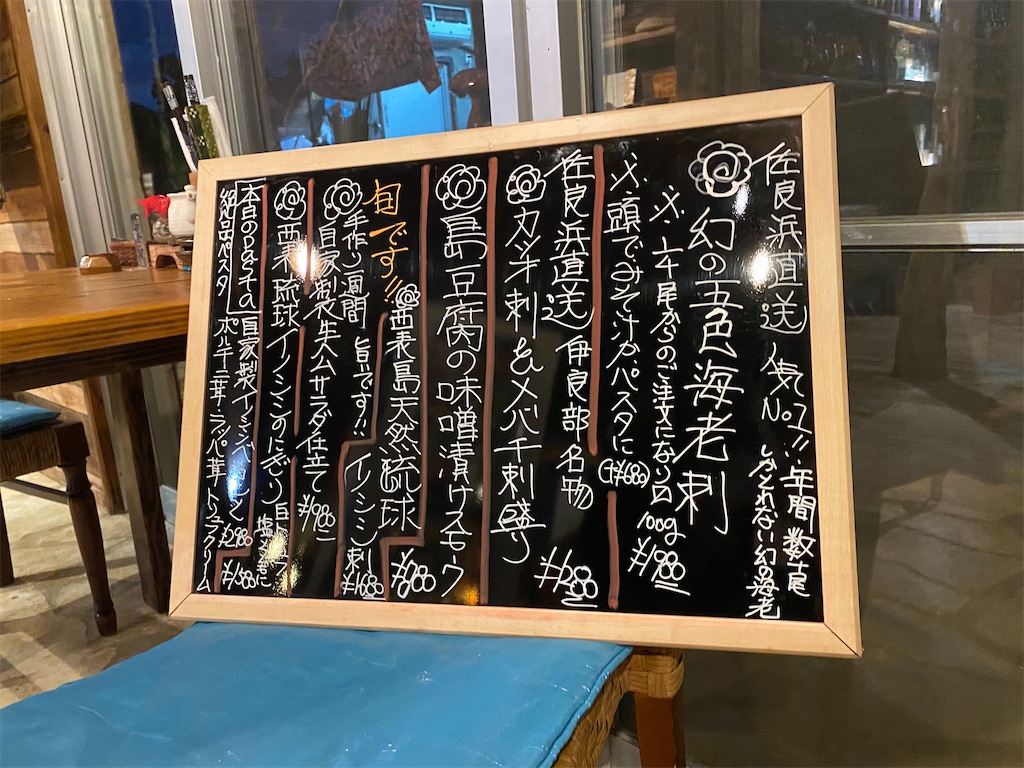 佐良浜直送 人気No.1!! 年間数十尾
しかとれない幻の海老
幻の五色海老刺
※.1/2尾からのご注文になります
100g ¥1,980
※.頭でみそ汁かパスタに
+¥680
佐良浜直送 伊良部名物
カツオ刺&メバチ刺盛り
¥1,280
島豆腐の味噌漬けスモーク
¥780
旬です!!
西表島天然琉球
イノシシ刺
¥1,680
手作り1週間
旨いです!!
自家製生ハムサラダ仕立て
¥980
西表琉球イノシシのにぎり
塩
¥1,280
本日のPasta
絶品パスタ
自家製イノシシベーコン
ポルチーニ茸・ラッパ茸 トリュフクリーム
¥1,580